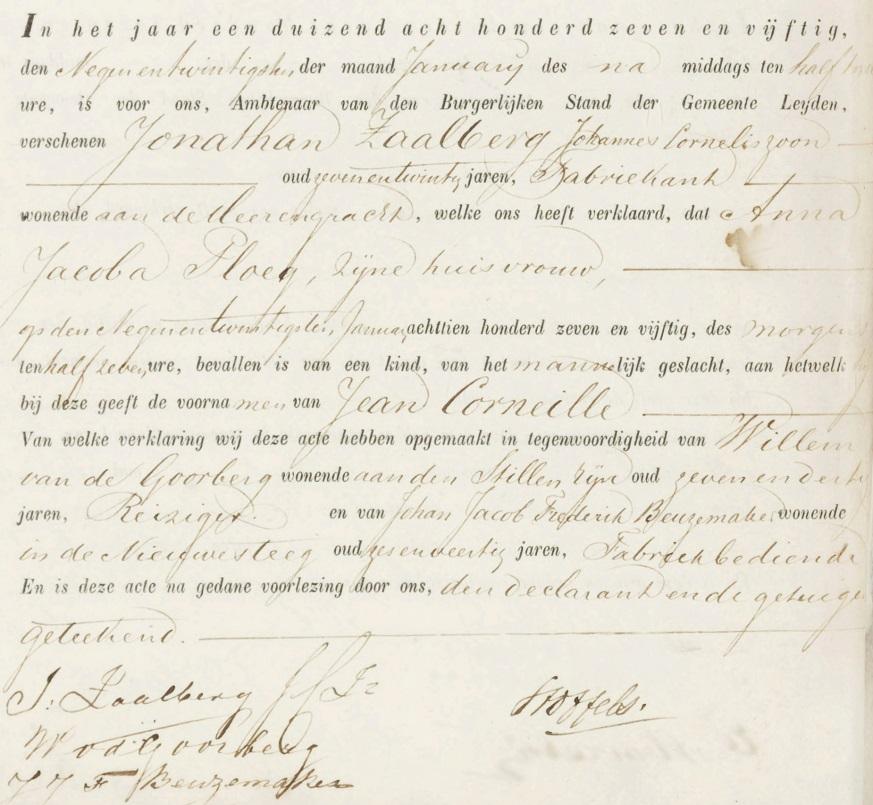 In het jaar een duizend acht honderd zeven en vijftig,
den Negenentwintigsten der maand January des na middags ten half
ure, is voor ons, Ambtenaar van den Burgerlijken Stand der Gemeente Leyden,
verschenen Jonathan Zaalberg Johannes Corneliszoon
oud zevenentwintig jaren, Fabriekant
wonende aan de Heerengracht, welke ons heeft verklaard, dat Anna
Jacoba Ploeg, zijne huisvrouw,
op den Negenentwintigsten January achttien honderd zeven en vijftig, des morgens
ten half zeven ure, bevallen is van een kind, van het mannelijk geslacht, aan hetwelk hij
bij deze geeft de voornamen van Jean Corneille
Van welke verklaring wij deze acte hebben opgemaakt in tegenwoordigheid van Willem
van de Goorberg wonende aan den Stillen Rijn oud zevenendertig
jaren, Reiziger. en van Johan Jacob Frederik Beuzemaker, wonende
in de Nieuwesteeg oud zesenveertig jaren, Fabriekbediende
En is deze acte na gedane voorlezing door ons, den declarant en de getuigen
geteekend.
J: Zaalberg JCz
W vd Goorberg
J J F Beuzemaker
Stoffels.